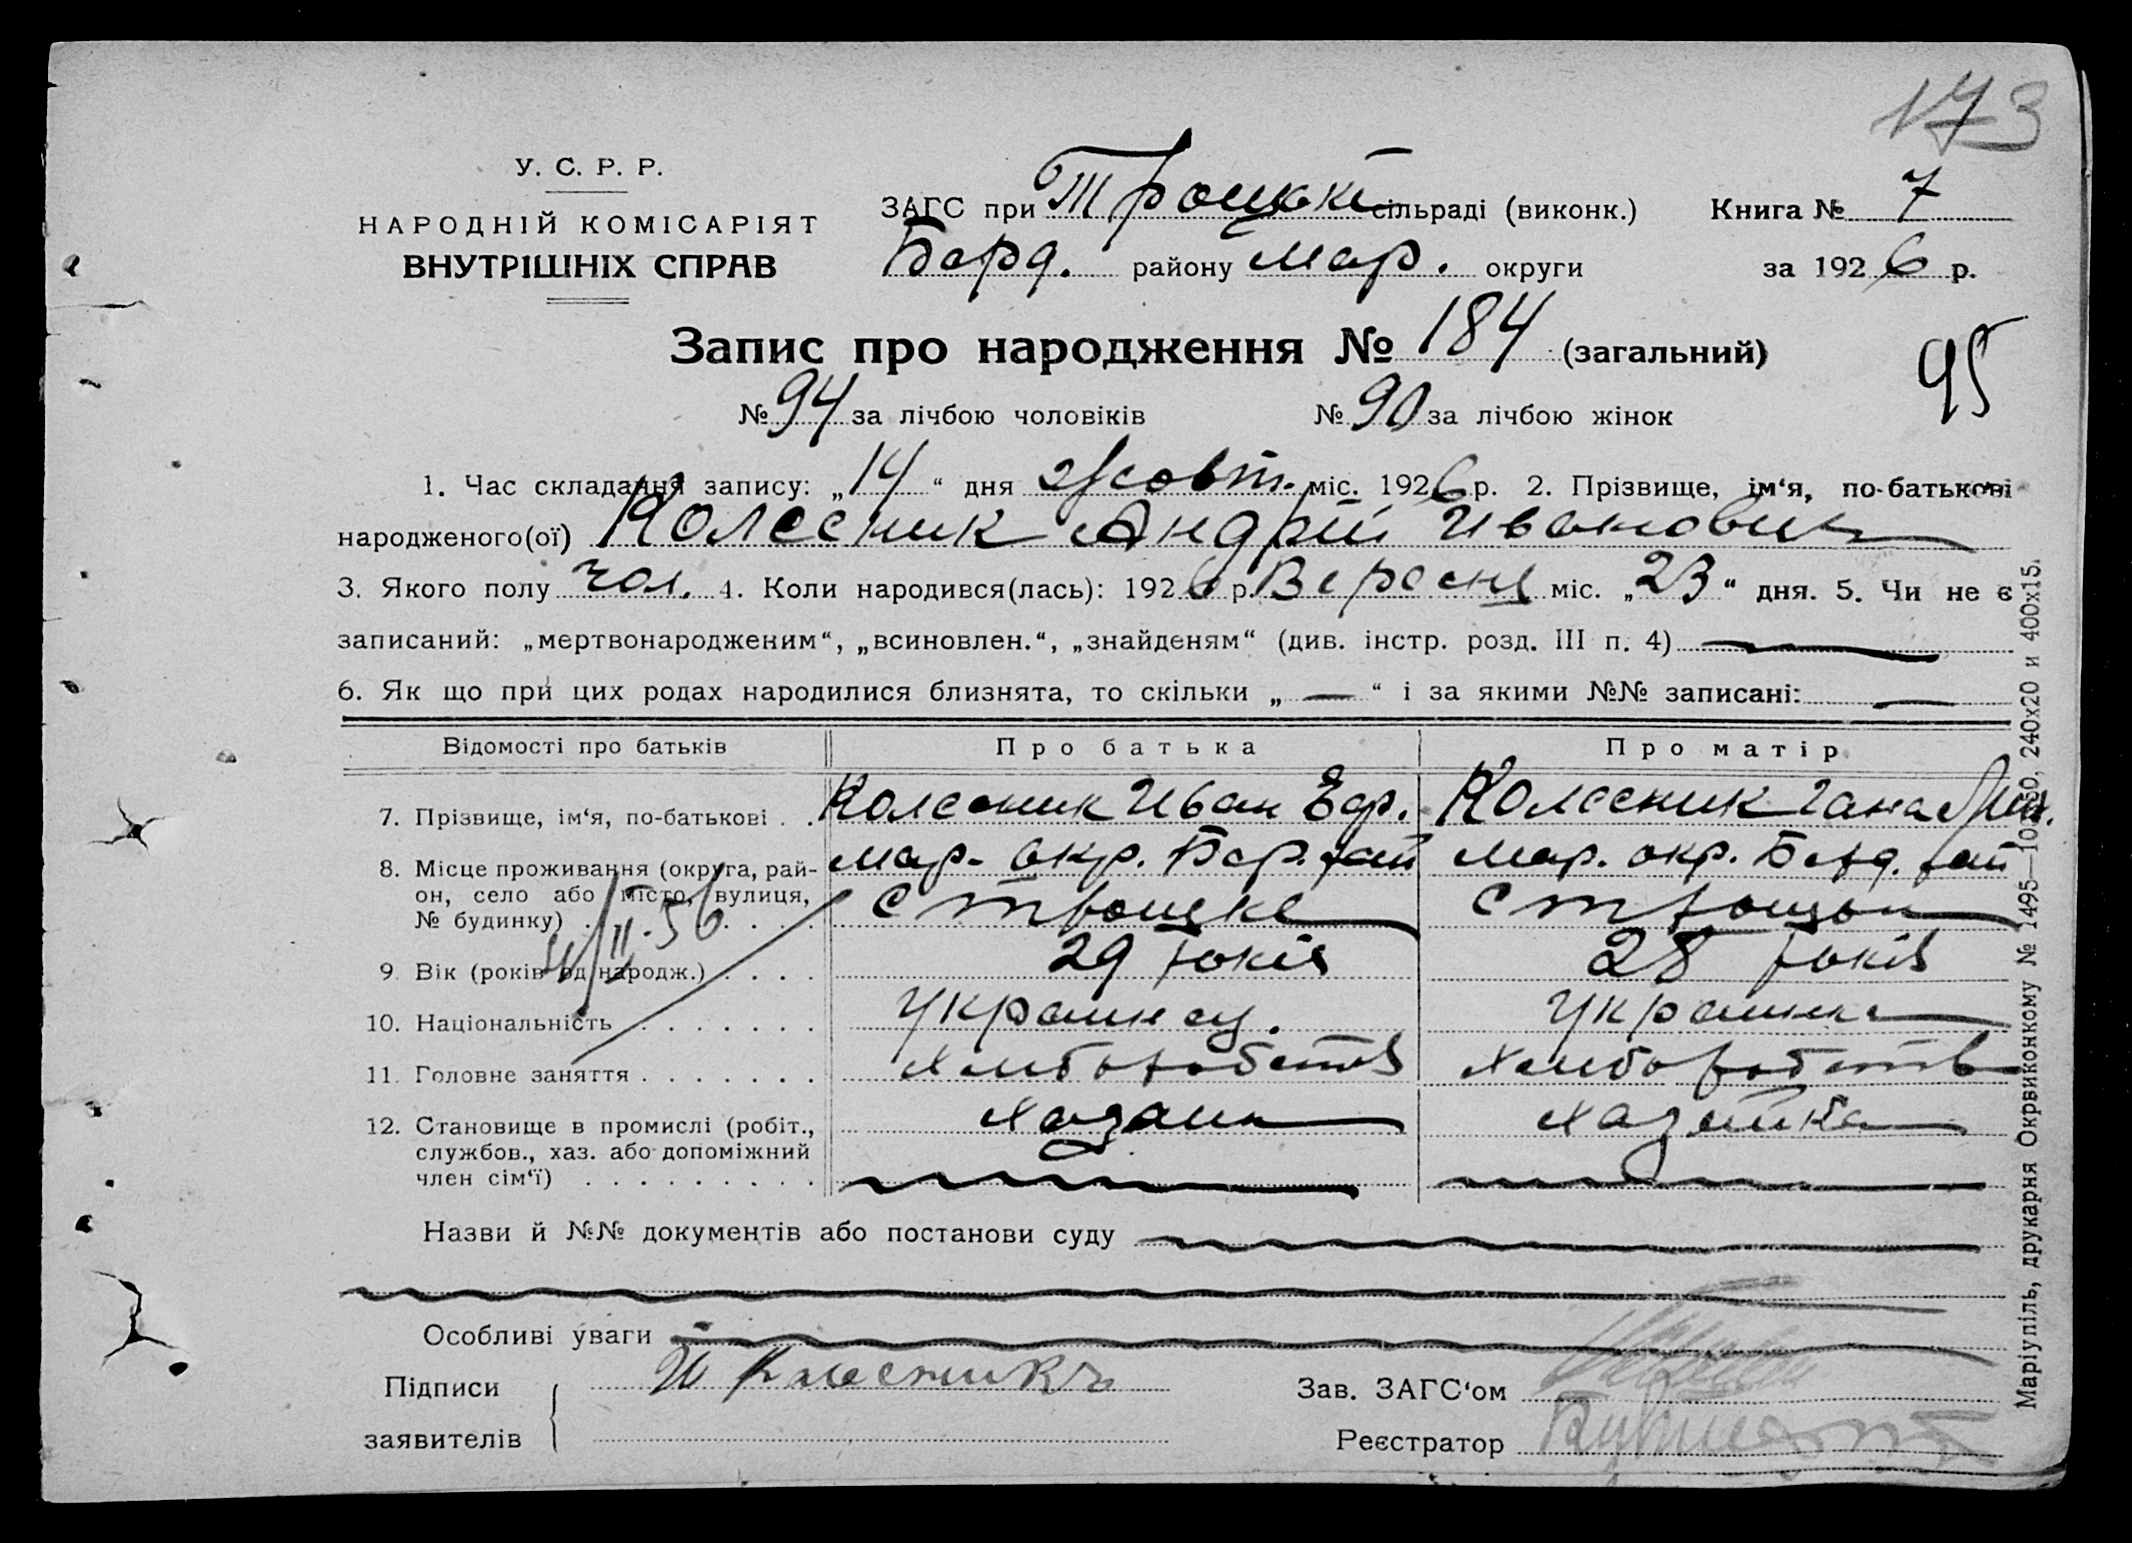 173
У. С. Р. Р.
НАРОДНІЙ КОМІСАРІЯТ
ВНУТРІШНІХ СПРАВ
ЗАГС при Троцькі сільраді (виконк.) Книга № 7
Берд. району Мар. округи за 1926 р.
Запис про народження № 184 (загальний)
95
№ 94 за лічбою чоловіків № 90 за лічбою жінок
1. Час складання запису: „14“ дня Жовт. міс. 1926 р. 2. Прізвище, ім‘я, по-батькові
народженого(ої) Колесник Андрій Иванович
3. Якого полу чол. 4. Коли народився(лась): 1926 р. Вересня міс. „23“ дня. 5. Чи не є
записаний: „мертвонародженим“, „всиновлен.“, „знайденям“ (див. інстр. розд. III п. 4)
6. Як що при цих родах народилися близнята, то скільки „ — “ і за якими №№ записані: —
Відомості про батьків Про батька Про матір
7. Прізвище, ім‘я, по-батькові . . Колесник Иван Еф. Колесник Гана
8. Місце проживання (округа, рай- Мар. окр. Бер. рай Мар. окр. Берд. рай
он, село або місто, вулиця, с Троцке с
№ будинку) . . . . .
4/II-56
9. Вік (років од народж.) . . . . 29 років 28 років
10. Національність . . . . . . . Украинец. Украинка
11. Головне заняття . . . . . . . Хлиборобств Хлиборобств
12. Становище в промислі (робіт., Хазаин Хазяйка
службов., хаз. або допоміжний
член сім‘ї) . . . . . . . . .
Назви й №№ документів або постанови суду
Особливі уваги
Підписи И Колесникъ Зав. ЗАГС‘ом
заявителів Реєстратор
Маріупіль, друкарня Окрвиконкому № 1495—10 50, 240х20 и 400х15.